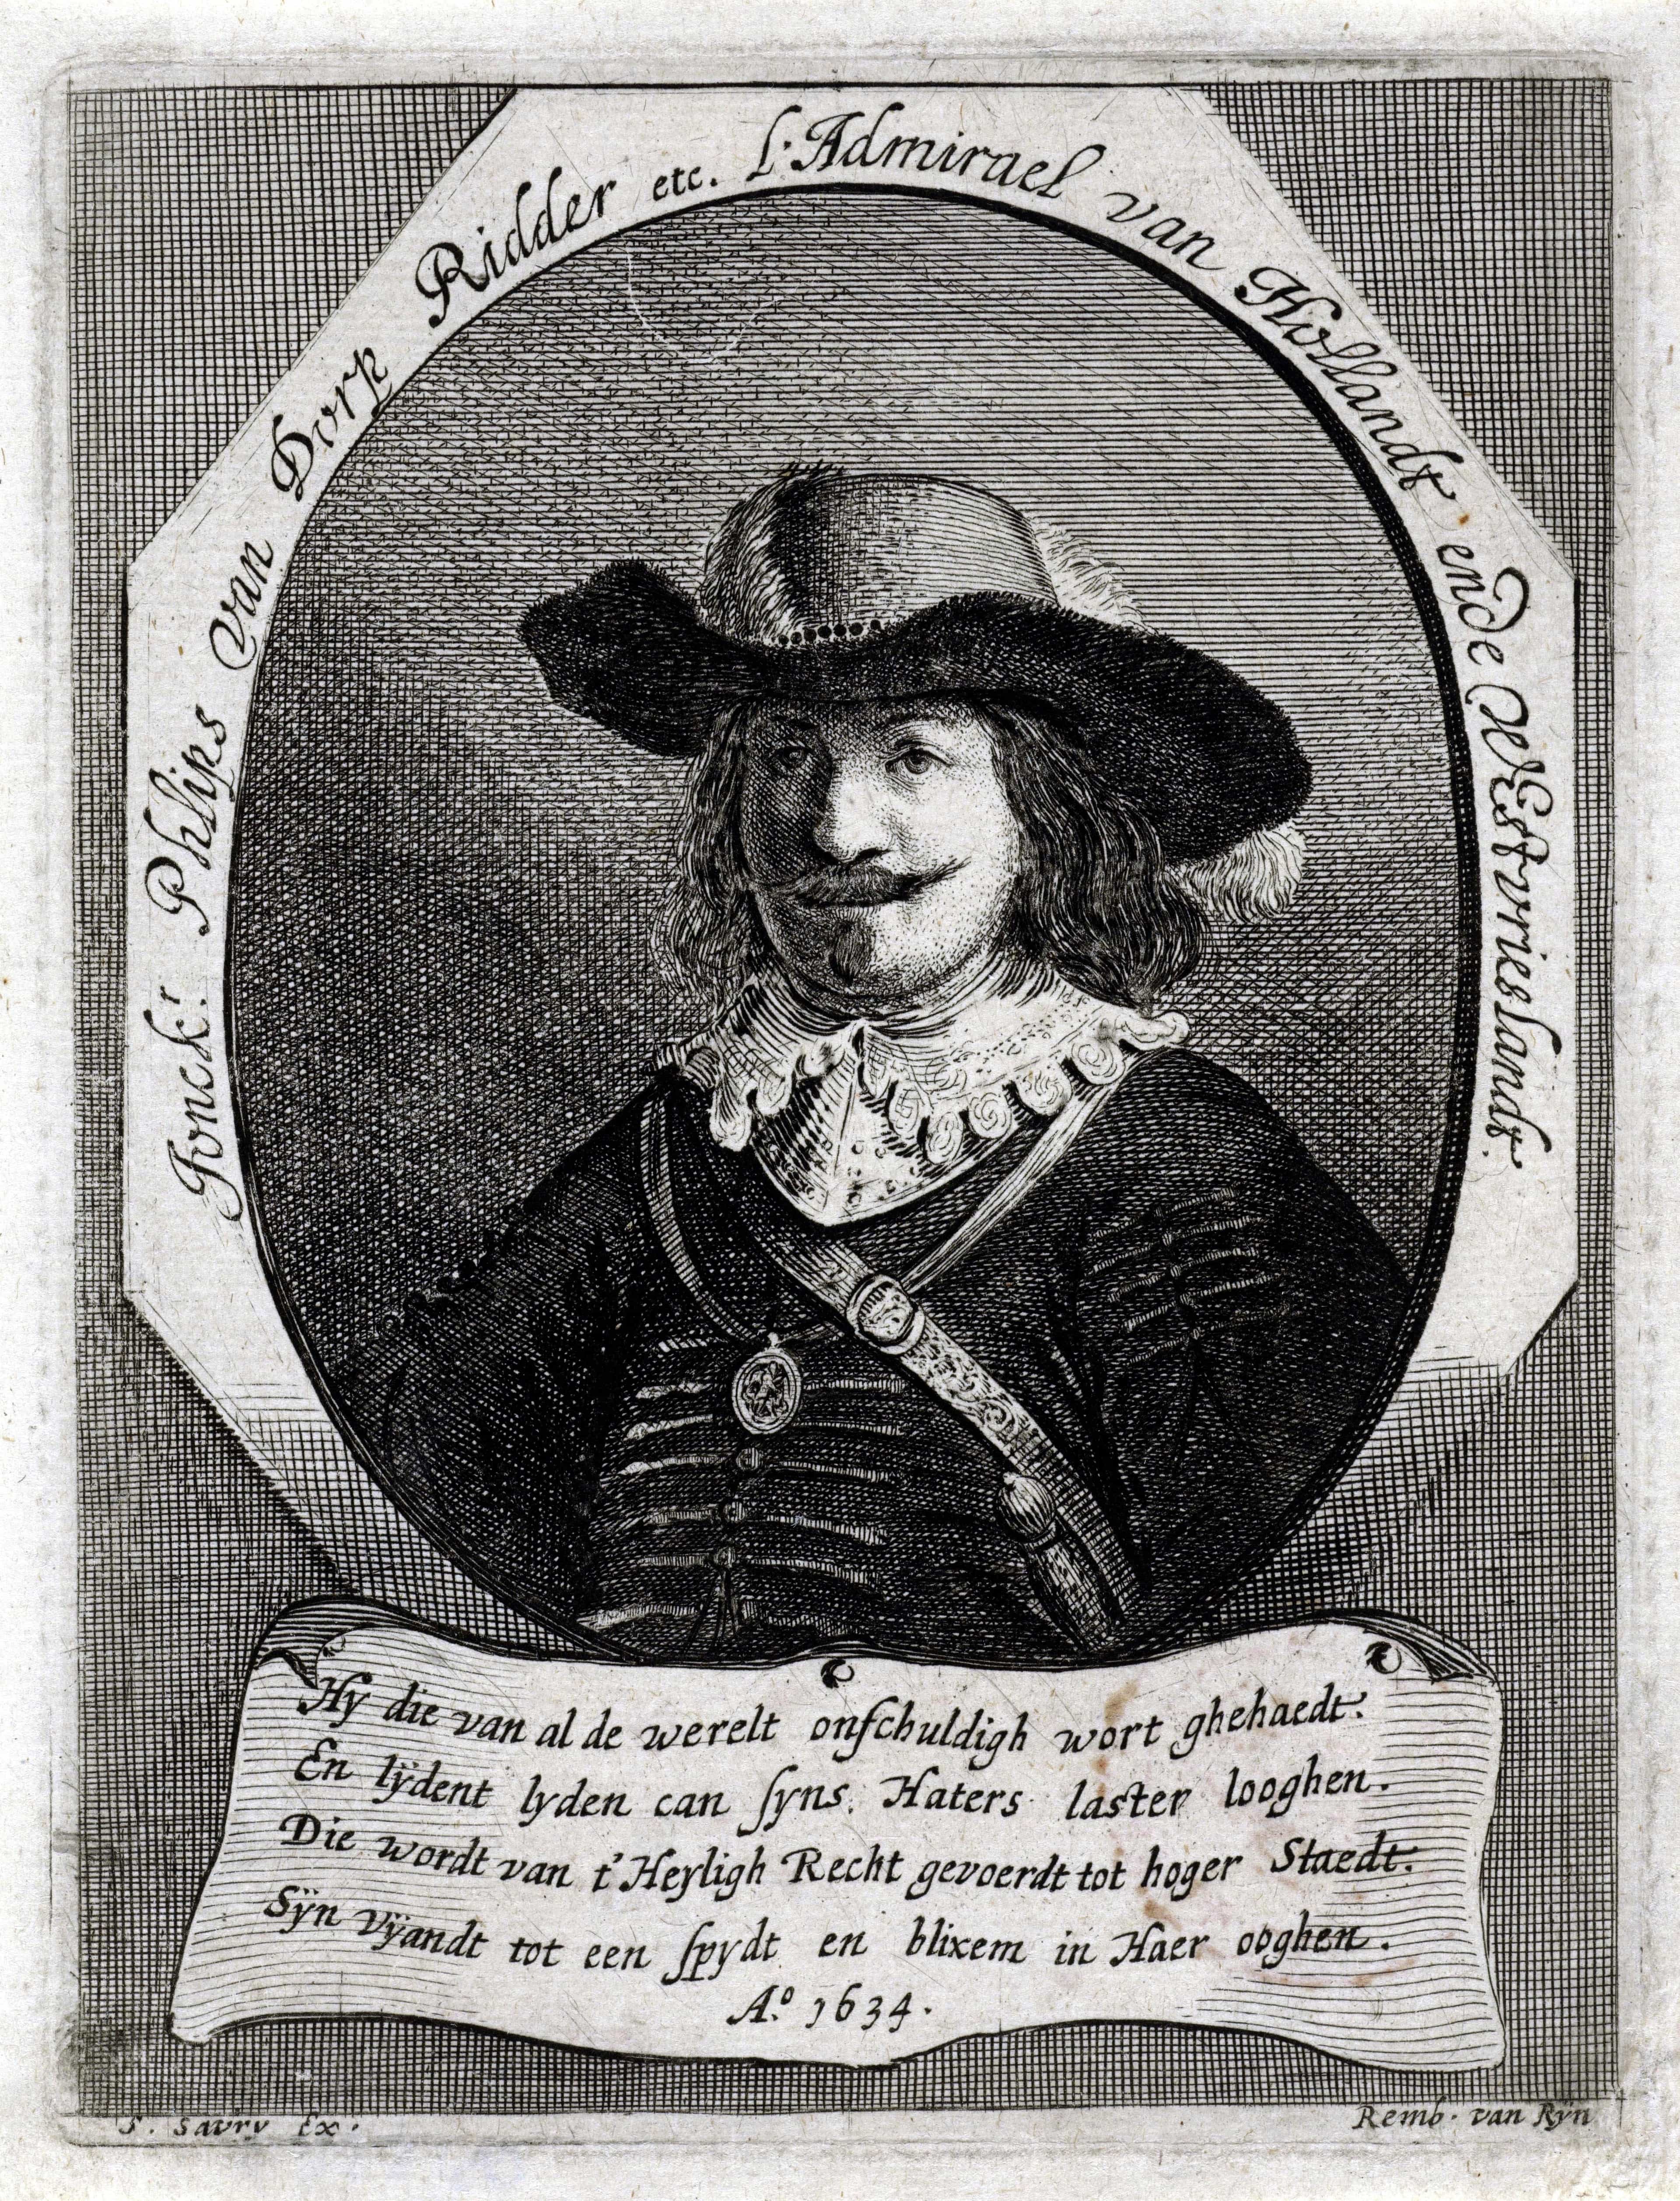 Jonckr. Phlips van Dorp Ridder etc. L. Admirael van Hollandt ende WEstvrieslandt.
Hÿ die van al de werelt onſchuldigh wort ghehaedt.
En lÿdent lyden can ſyns. Haters laster looghen.
Die wordt van t' Heyligh Recht gevoerdt tot hoger Staedt.
Sÿn vÿandt tot een ſpydt en blixem in Haer ooghen.
A.o 1634.
S. Savry Ex.
Remb. van Rÿn